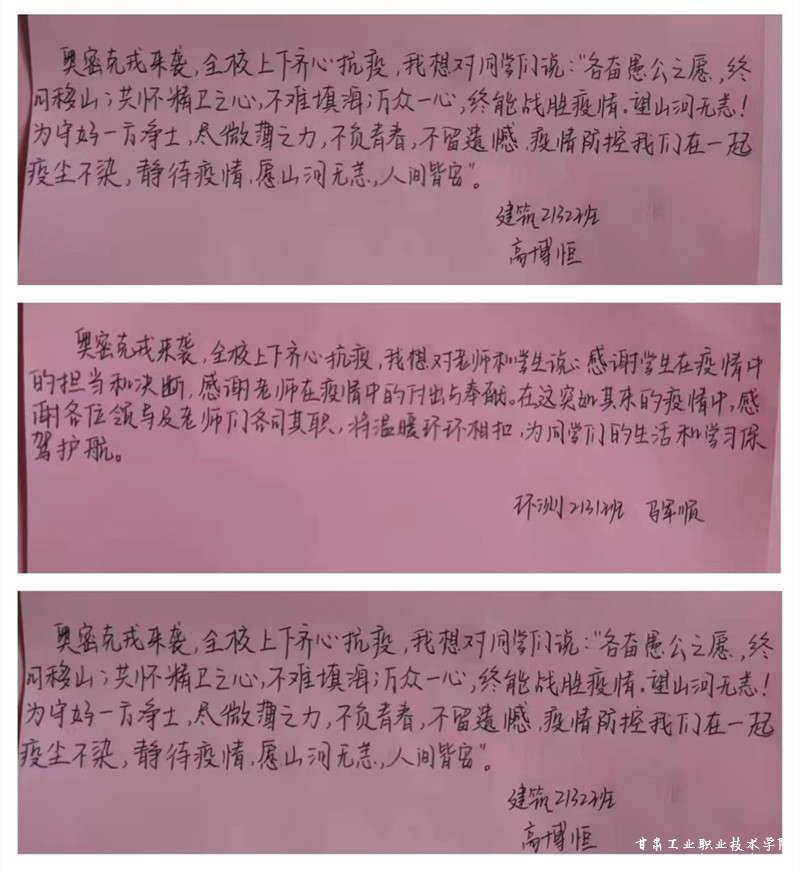 奥密克戎来袭，全校上下齐心抗疫，我想对同学们说：“各奋愚公之愿，终
可移山；共怀精卫之心，不难填海；万众一心，终能战胜疫情。望山河无恙！
为守好一方净土，尽微薄之力，不负青春，不留遗憾，疫情防控我们在一起
疫尘不染，静待疫情，愿山河无恙，人间皆安”。
建筑2132班
高博恒
奥密克戎来袭，全校上下齐心抗疫，我想对老师和学生说：感谢学生在疫情中
的担当和决断，感谢老师在疫情中的付出与奉献。在这突如其来的疫情中，感
谢各位领导及老师们各司其职，将温暖环环相扣，为同学们的生活和学习保
驾护航。
环测2131班 马军顺
奥密克戎来袭，全校上下齐心抗疫，我想对同学们说：“各奋愚公之愿，终
可移山；共怀精卫之心，不难填海；万众一心，终能战胜疫情。望山河无恙！
为守好一方净土，尽微薄之力，不负青春，不留遗憾，疫情防控我们在一起
疫尘不染，静待疫情，愿山河无恙，人间皆安”。
建筑2132班
高博恒
甘肃工业职业技术学院